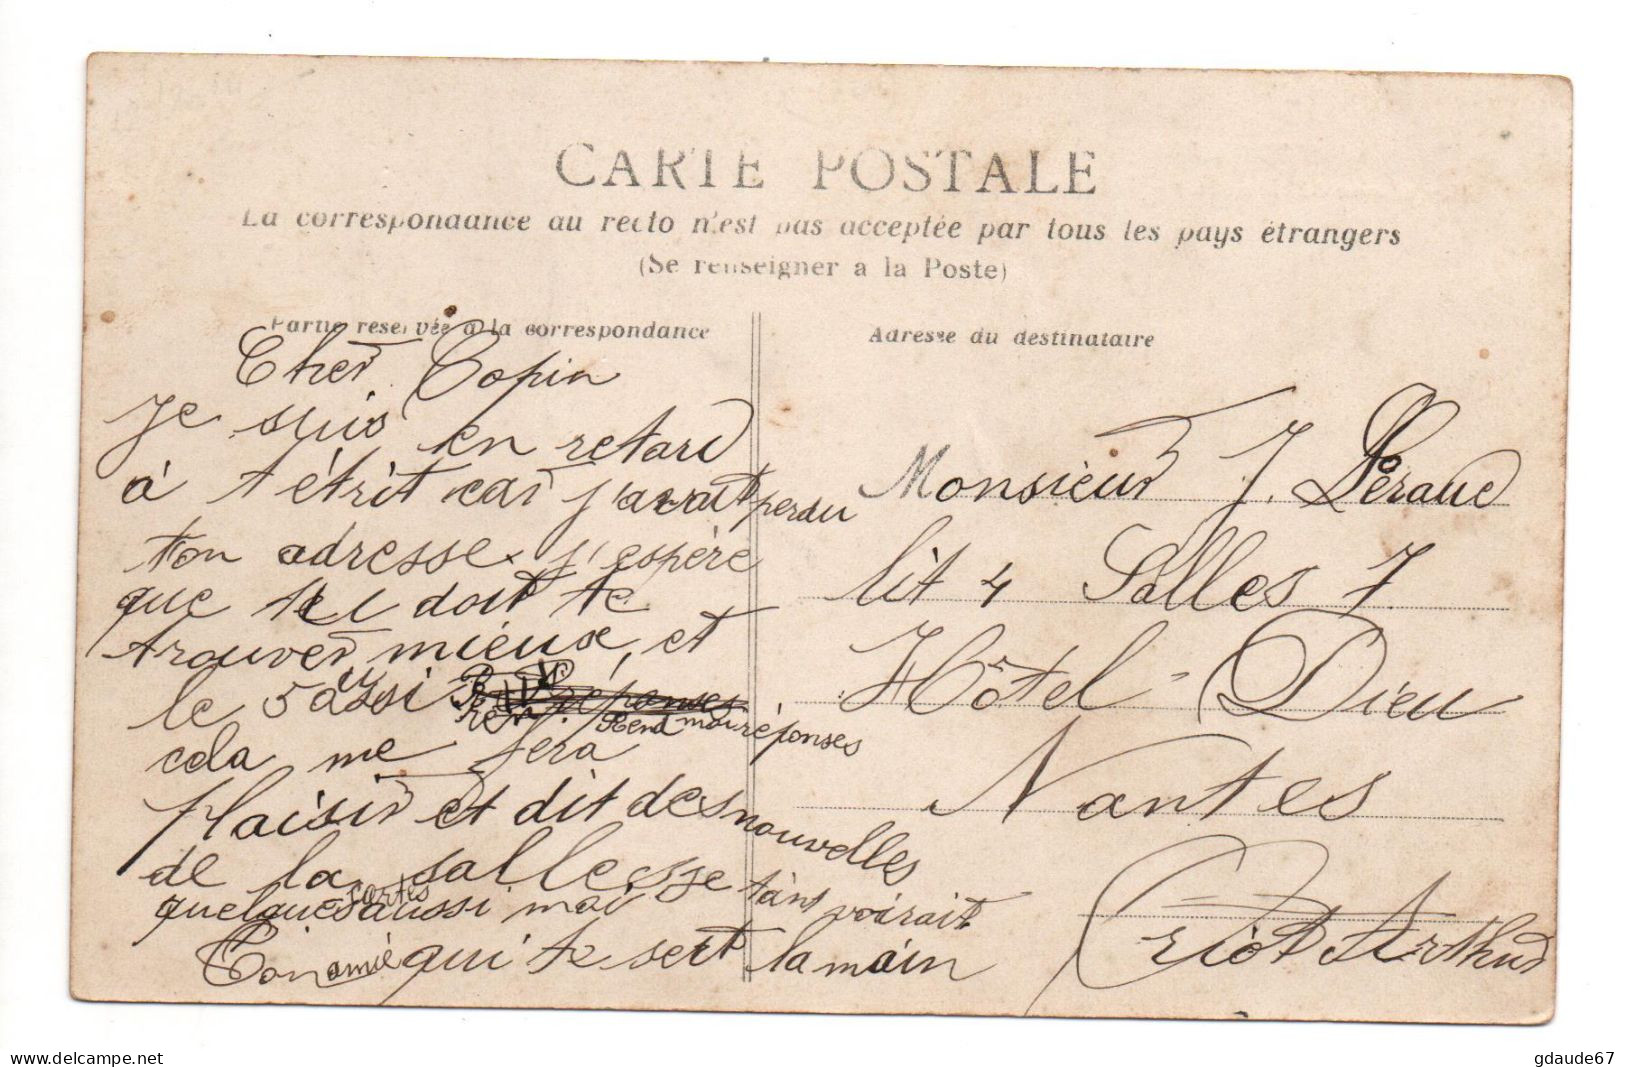 CARTE POSTALE
La correspondance au recto n'est pas acceptée par tous les pays étrangers
(Se renseigner à la Poste)
Partie réservée à la correspondance
Cher Copin
je suis en retard
à t étrit car j'avait perdu
ton adresse j'espère
que tu doit te
trouver mieux et
le 5 aussi
Rend moi réponses
cela me fera
plaisir et dit des nouvelles
de la salle sse tans voirait
quelques cartes aussi moi
Ton amie qui te sert la main
Adresse du destinataire
Monsieur J. Peraud
lit 4 Salles 7
Hôtel-Dieu
Nantes
Criot Arthur
delcampe.net
gdaude67